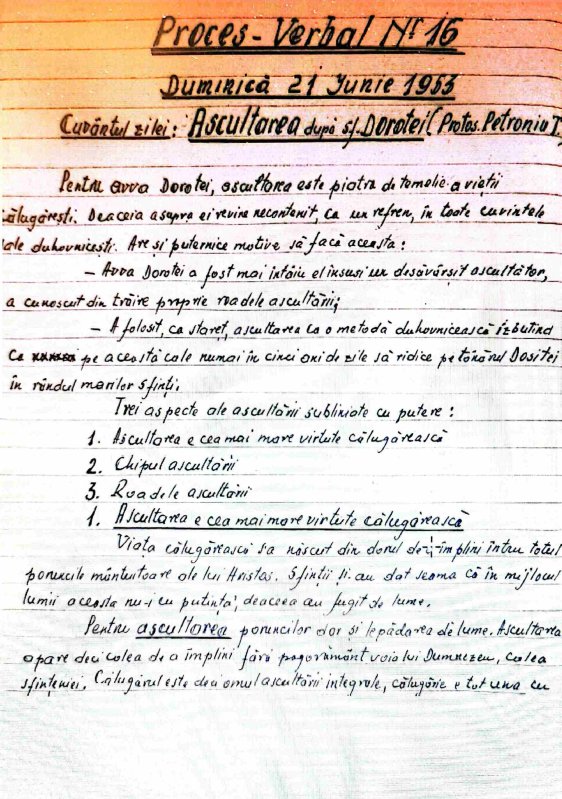 Proces-Verbal Nr 16
Duminică 21 Iunie 1953
Cuvântul zilei: Ascultarea după sf. Dorotei (Protos. Petroniu T.)
Pentru avva Dorotei, ascultarea este piatra de temelie a vieții
călugărești. Deaceia asupra ei revine necontenit, ca un refren, în toate cuvintele
ale duhovnicești. Are și puternice motive să facă aceasta:
– Avva Dorotei a fost mai întâiu el însuși un desăvârșit ascultător,
a cunoscut din trăire proprie roadele ascultării;
– A folosit, ca stareț, ascultarea ca o metodă duhovnicească izbutind
Ca pe această cale numai în cinci ani de zile să ridice pe tânărul Dositei
în rândul marilor sfinți.
Trei aspecte ale ascultării subliniate cu putere:
1. Ascultarea e cea mai mare virtute călugărească
2. Chipul ascultării
3. Roadele ascultării
1. Ascultarea e cea mai mare virtute călugărească
Viața călugărească s'a născut din dorul de-a-împlini întru totul
poruncile mântuitoare ale lui Hristos. Sfinții și-au dat seama că în mijlocul
lumii aceasta nu-i cu putință, deaceea au fugit de lume.
Pentru ascultarea poruncilor dar și lepădarea de lume. Ascultarea
apare deci calea de a împlini fără pogorământ voia lui Dumnezeu, calea
sfințeniei. Călugărul este deci omul ascultării integrale, călugărie e tot una cu